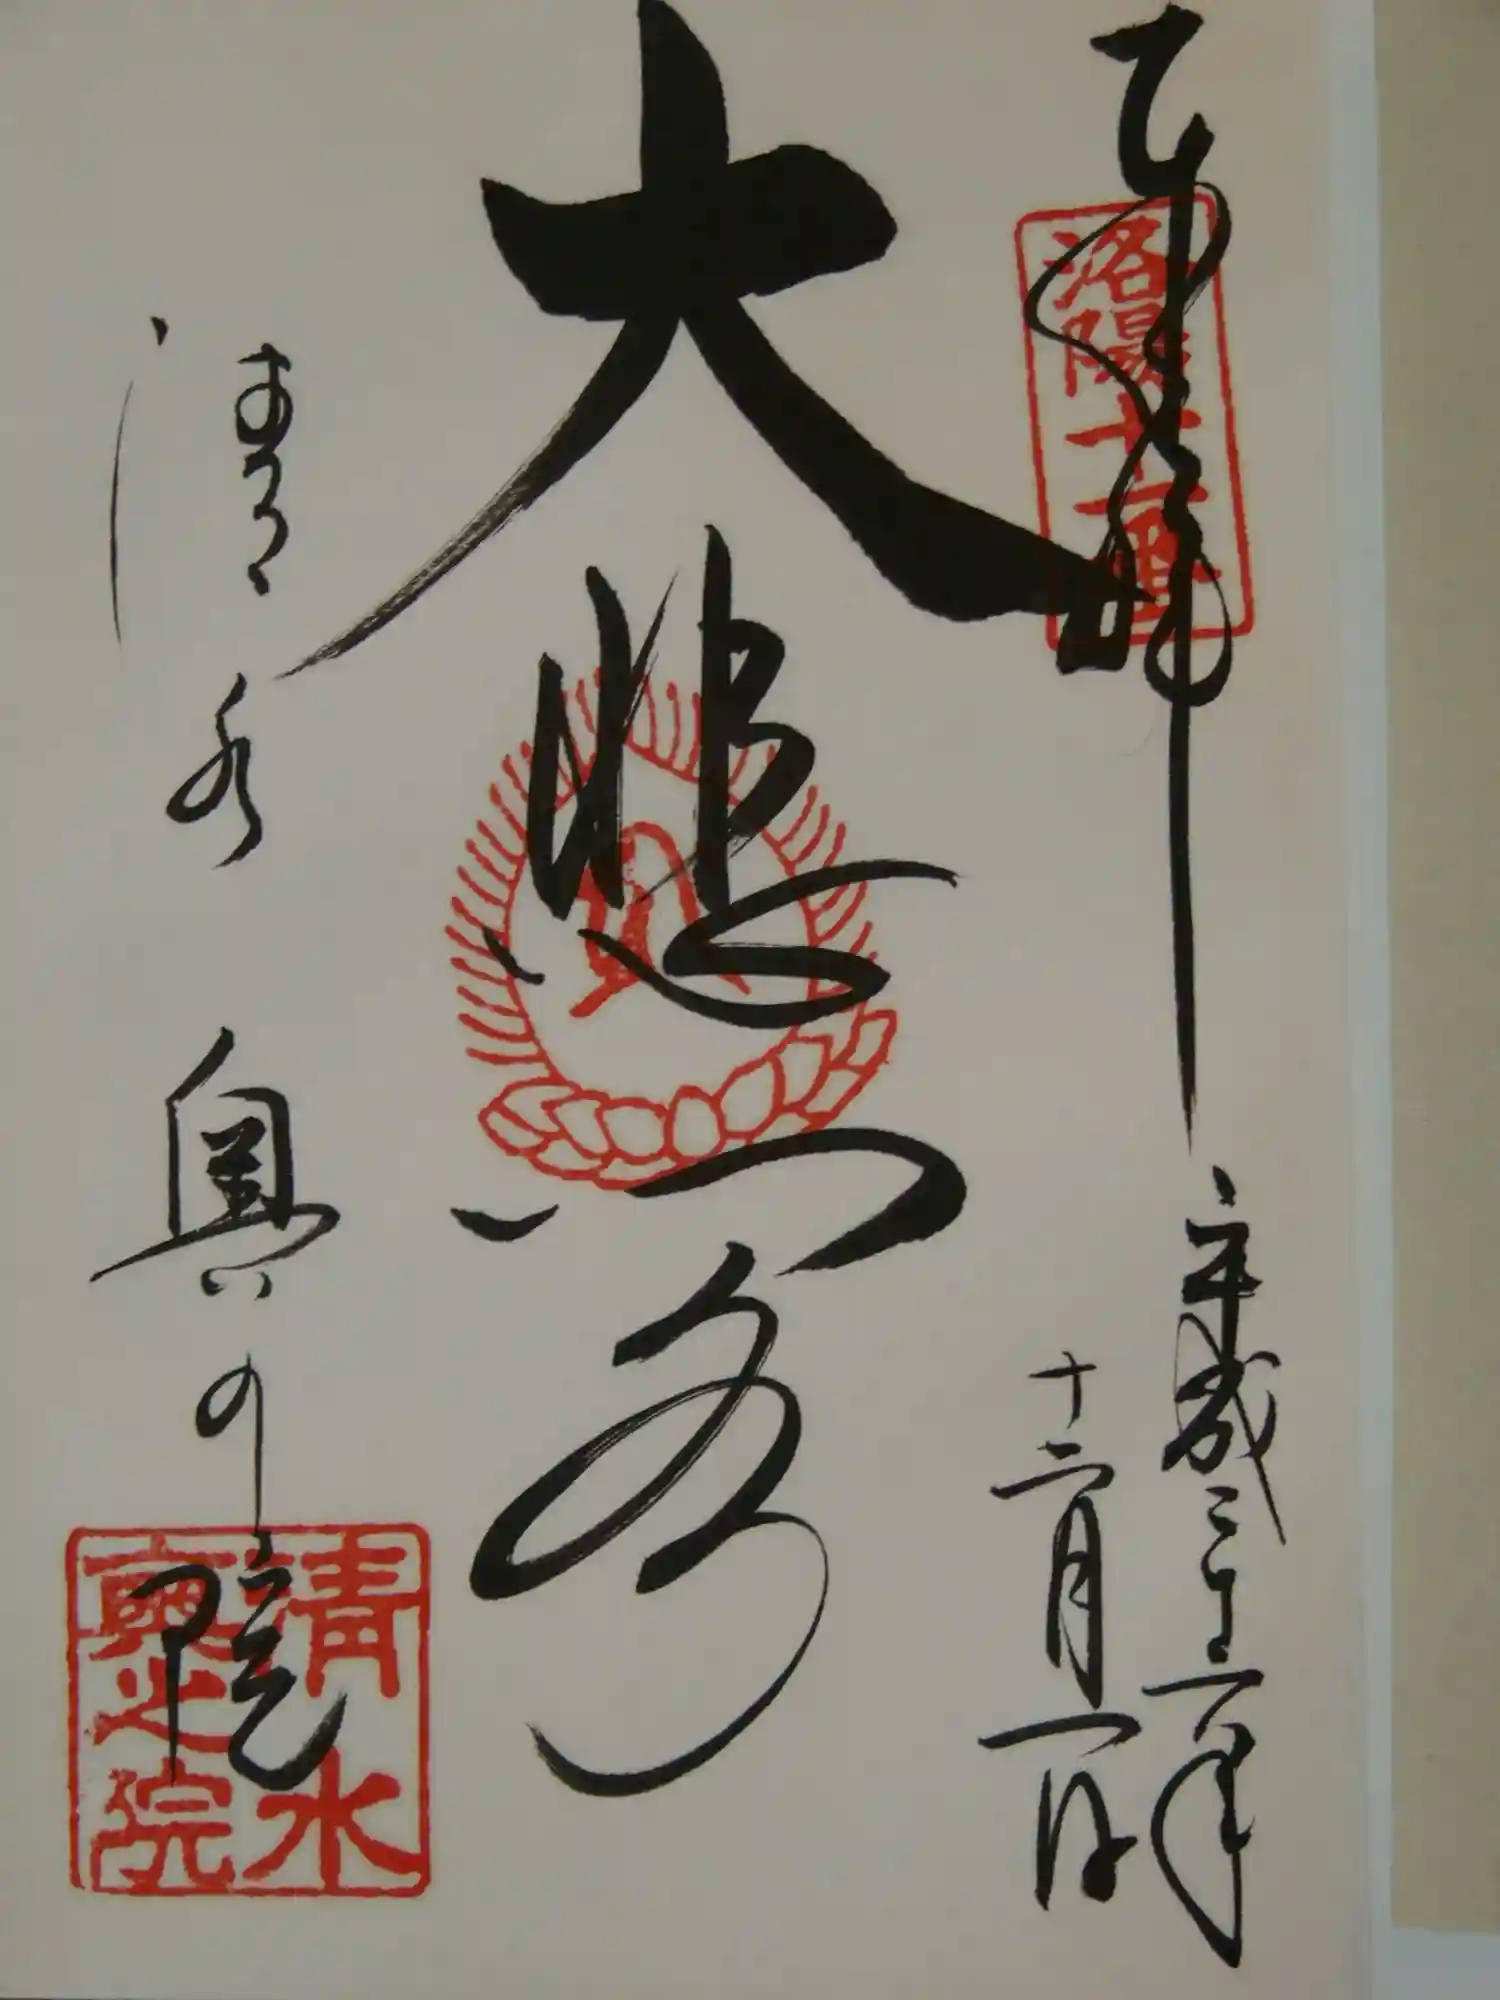 奉拝
洛陽十一番
平成二十二年
十二月一日
大悲閣
清水 奥の院
清水
奥之院